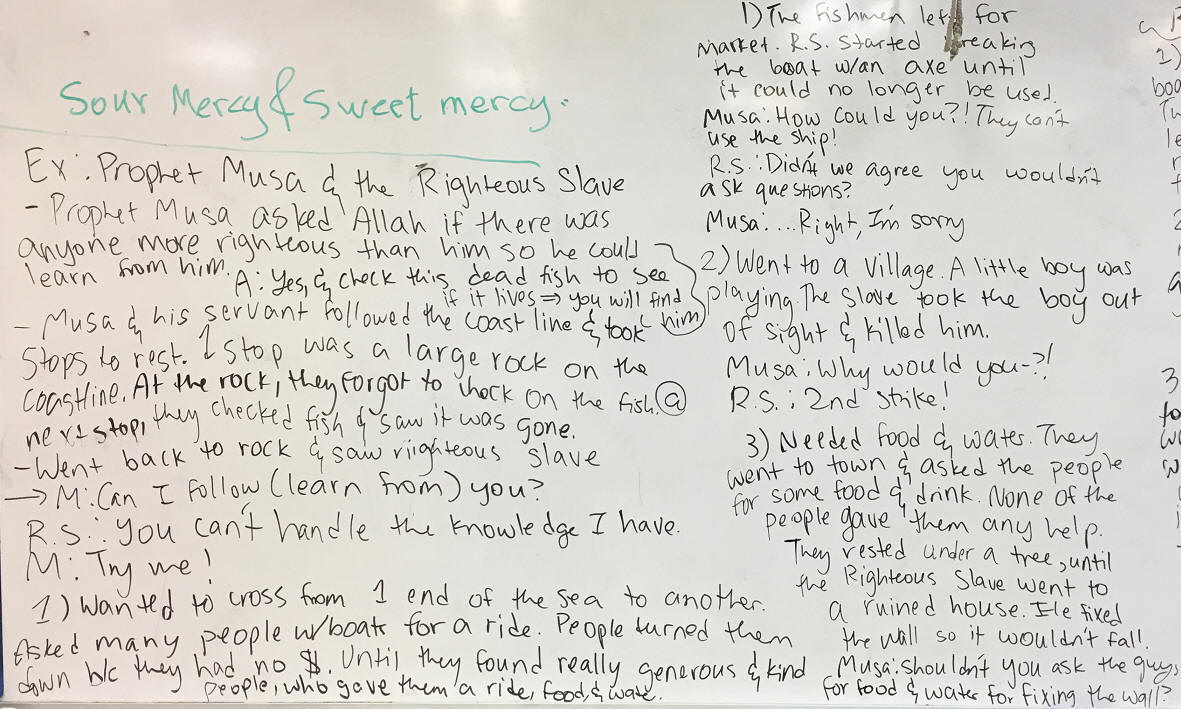 Sour Mercy & Sweet mercy.
Ex: Prophet Musa & the Righteous Slave
- Prophet Musa asked Allah if there was
anyone more righteous than him so he could
learn from him.
A: Yes, & check this dead fish to see
if it lives ⇒ you will find
him
- Musa & his servant followed the coast line & took
stops to rest. 1 stop was a large rock on the
coastline. At the rock, they forgot to check on the fish. @
next stop, they checked fish & saw it was gone.
- Went back to rock & saw riighteous slave
→ M: Can I follow (learn from) you?
R.S.: You can't handle the knowledge I have.
M: Try me!
1) Wanted to cross from 1 end of the sea to another.
Asked many people w/boats for a ride. People turned them
down b/c they had no $. Until they found really generous & kind
people, who gave them a ride, food, & wate.
1) The fishmen left for
market. R.S. started breaking
the boat w/an axe until
it could no longer be used.
Musa: How could you?! They can't
use the ship!
R.S.: Didn't we agree you wouldn't
ask questions?
Musa: ...Right, I'm sorry
2) Went to a village. A little boy was
playing. The slave took the boy out
of sight & killed him.
Musa: Why would you-?!
R.S.: 2nd strike!
3) Needed food & water. They
went to town & asked the people
for some food & drink. None of the
people gave them any help.
They rested under a tree, until
the Righteous Slave went to
a ruined house. He fixed
the wall so it wouldn't fall.
Musa: shouldn't you ask the guys
for food & water for fixing the wall?
1)
boa
3